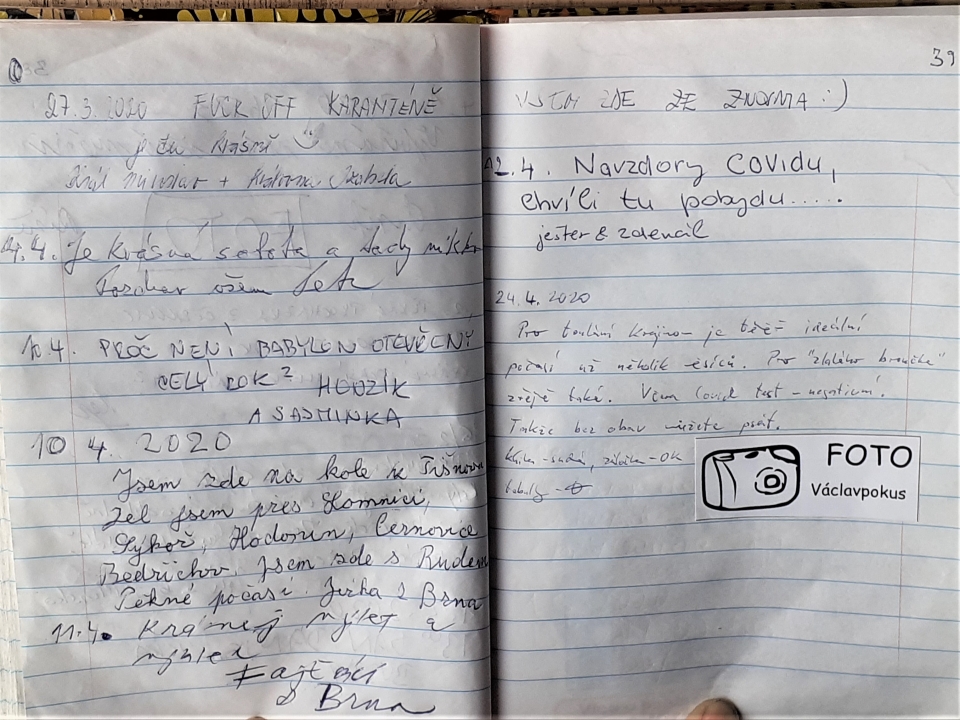 27.3.2020 FUCK OFF KARANTÉNĚ
je tu krásně
Král Miloslav + Královna Izabela
4.4. Je krásná sobota a tady nikdo
Pozdrav všem
10.4. PROČ NENÍ BABYLON OTEVŘENÝ
CELÝ ROK? HONZÍK
A SASMINKA
10 4. 2020
Jsem zde na kole z Tišnova
Jel jsem přes Lomnici,
Sýkoř, Hodonín, Černovice
Bedřichov. Jsem zde s Rudem
Pěkné počasí. Jirka z Brna
11.4. Krásnej výlet a
výhled
Fajťáci
z Brna
39
VŠEM ZDE ZE ZNORMA :)
12.4. Navzdory COVIDU,
chvíli tu pobydu.....
jester & zdencil
24.4.2020
Pro toulání krajinou je teď ideální
počasí už několik měsíců. Pro "zlatého broučka"
zřejmě také. Včera Covid test - negativní.
Takže bez obav můžete psát.
Kniha - suchá, - OK
FOTO
Václavpokus